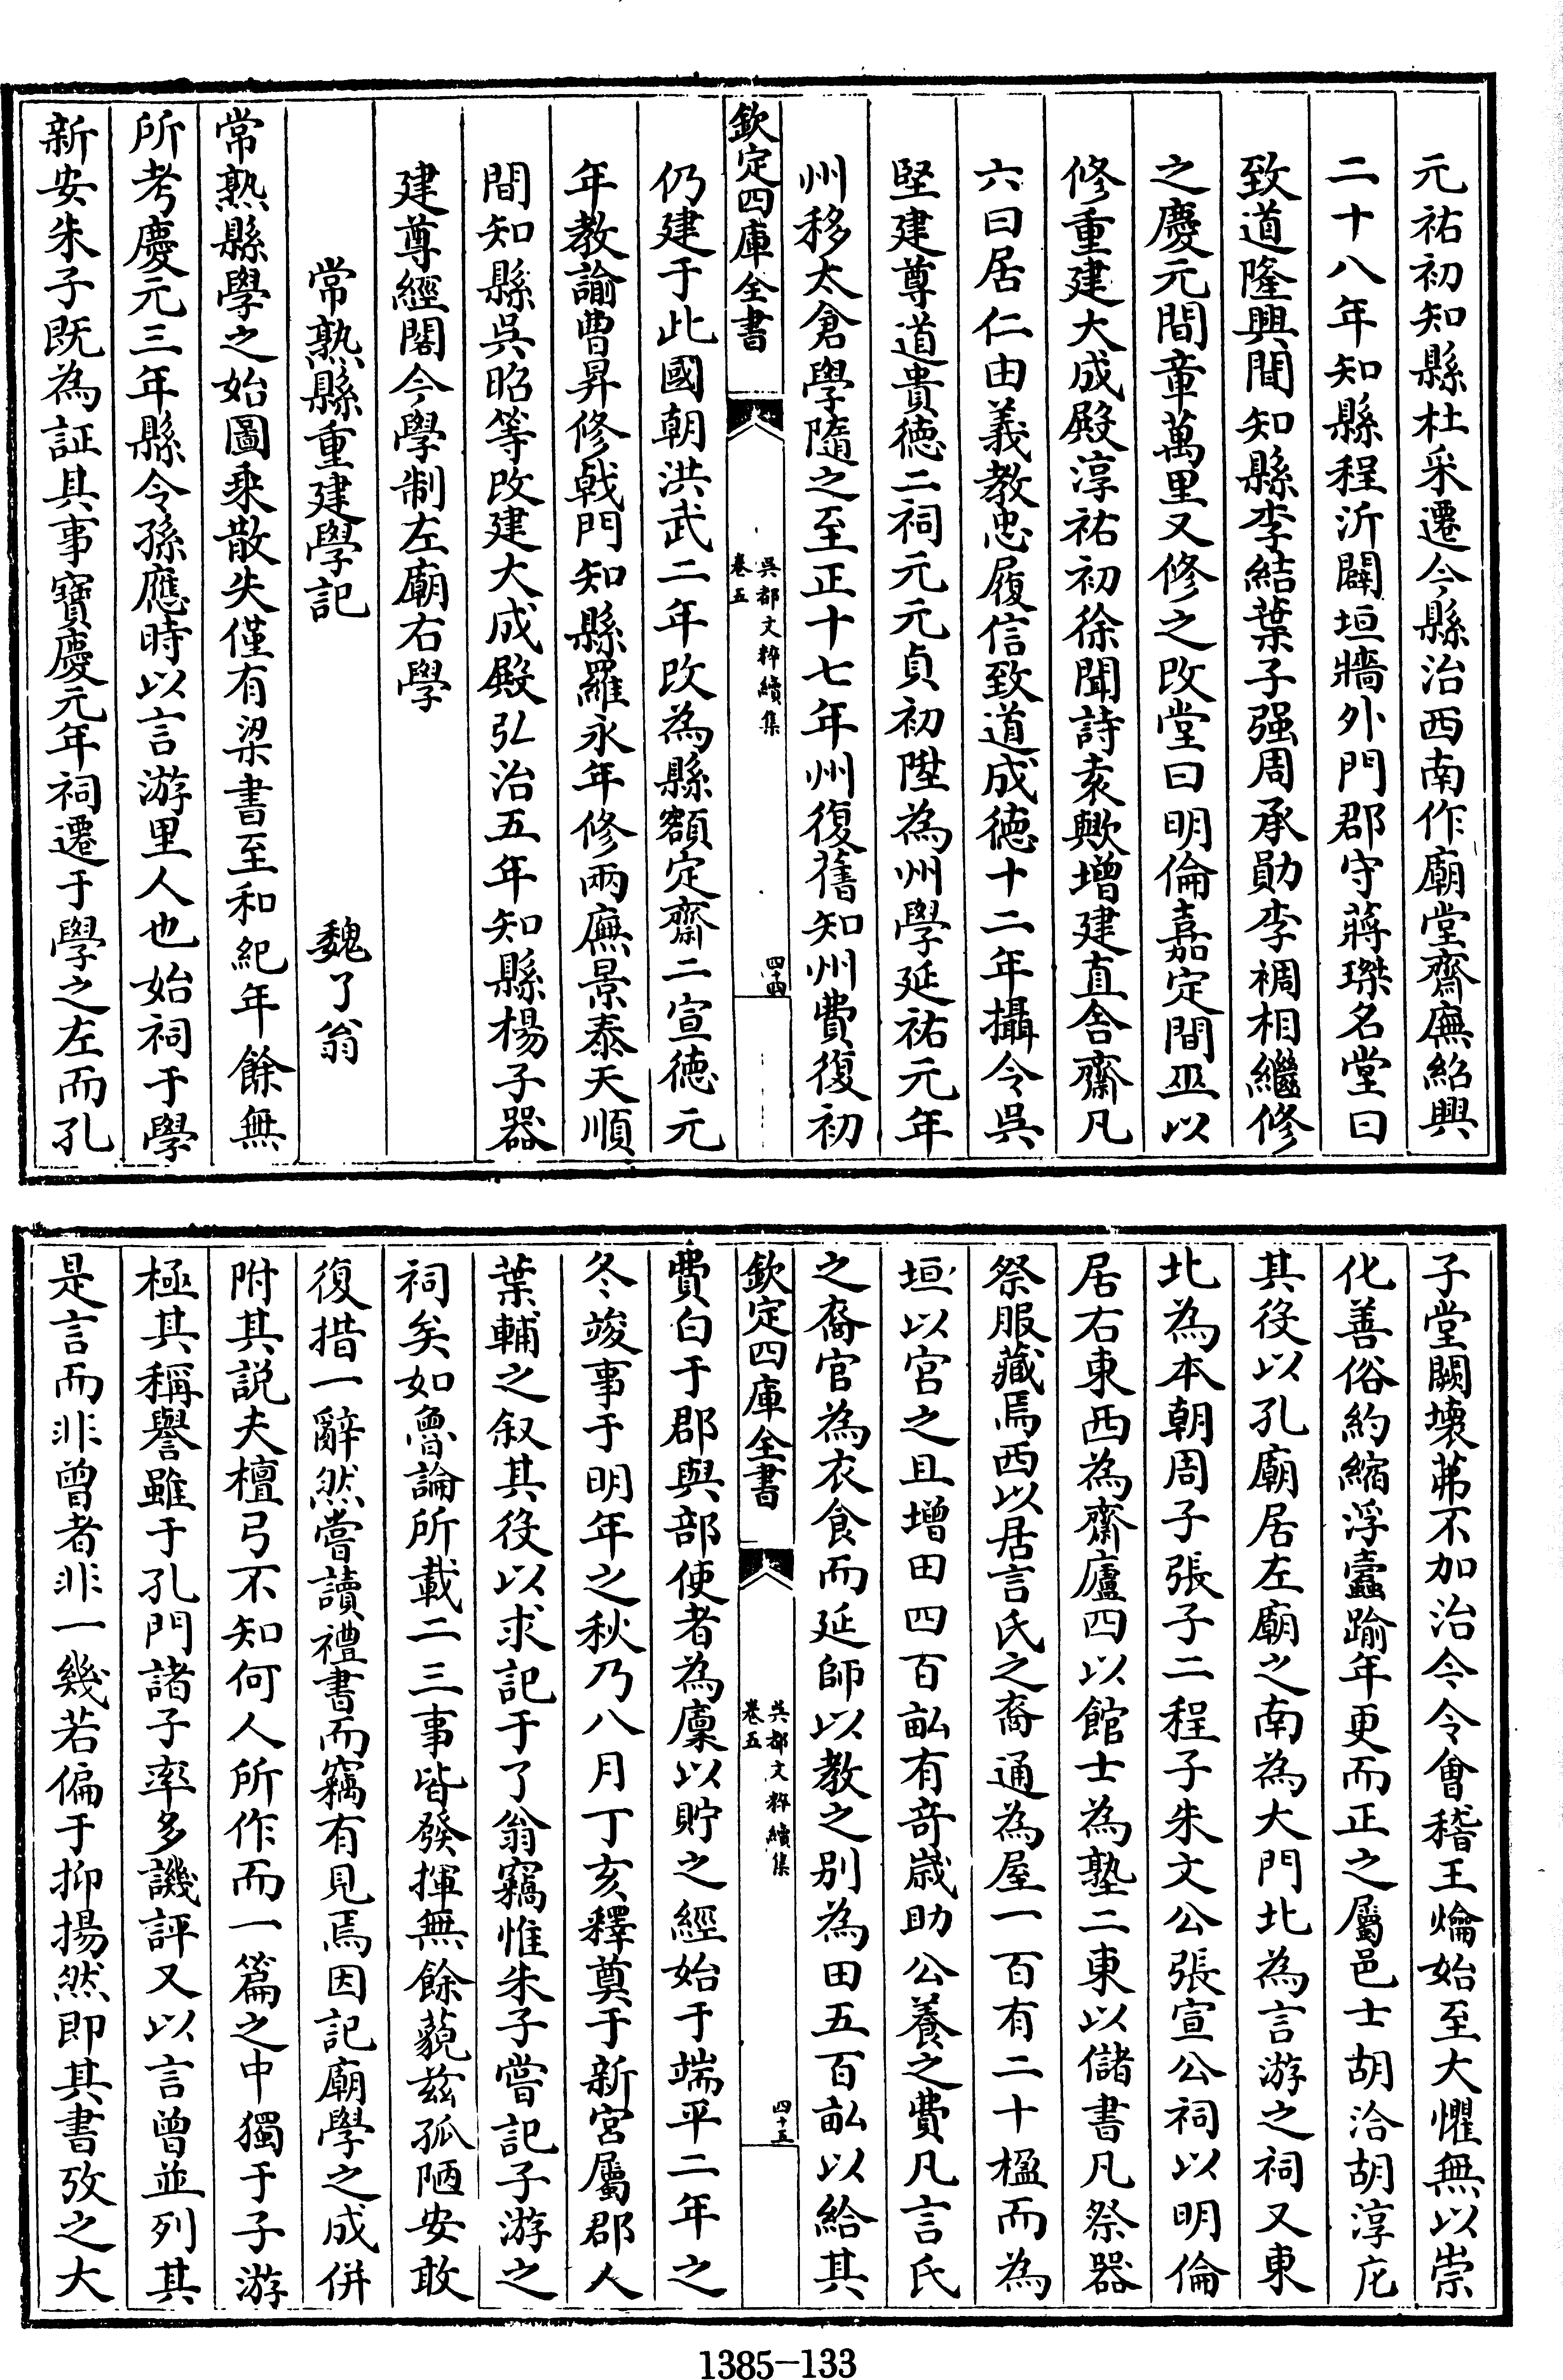 元祐初知縣杜采遷今縣治西南作廟堂齋廡紹興
二十八年知縣程沂闢垣牆外門郡守蔣璨名堂曰
致道隆興間知縣李結葉子强周承勛李裯相繼修
之慶元間章萬里又修之改堂曰明倫嘉定間巫以
修重建大成殿淳祐初徐聞詩袁歟增建直舍齋凡
六曰居仁由義教忠履信致道成德十二年攝令吳
堅建尊道貴德二祠元元貞初陞為州學延祐元年
州移太倉學隨之至正十七年州復舊知州費復初
欽定四庫全書
吳都文粹續集
卷五
四十四
仍建于此國朝洪武二年改為縣額定齋二宣德元
年教諭曹昇修戟門知縣羅永年修兩廡景泰天順
間知縣吳昭等改建大成殿弘治五年知縣楊子器
建尊經閣今學制左廟右學
常熟縣重建學記 魏了翁
常熟縣學之始圖乘散失僅有梁書至和紀年餘無
所考慶元三年縣令孫應時以言游里人也始祠于學
新安朱子既為証其事寶慶元年祠遷于學之左而孔
子堂闕壞茀不加治今令會稽王爚始至大懼無以崇
化善俗約縮浮蠹踰年更而正之屬邑士胡洽胡淳庀
其役以孔廟居左廟之南為大門北為言游之祠又東
北為本朝周子張子二程子朱文公張宣公祠以明倫
居右東西為齋廬四以館士為塾二東以儲書凡祭器
祭服藏焉西以居言氏之裔通為屋一百有二十楹而為
垣以宮之且增田四百畝有奇歲助公養之費凡言氏
之裔官為衣食而延師以教之别為田五百畝以給其
欽定四庫全書
吳都文粹續集
卷五
四十五
費白于郡與部使者為廩以貯之經始于端平二年之
冬竣事于明年之秋乃八月丁亥釋奠于新宮屬郡人
葉輔之叙其役以求記于了翁竊惟朱子嘗記子游之
祠矣如魯論所載二三事皆發揮無餘藐茲孤陋安敢
復措一辭然嘗讀禮書而竊有見焉因記廟學之成併
附其説夫檀弓不知何人所作而一篇之中獨于子游
極其稱譽雖于孔門諸子率多譏評又以言曾並列其
是言而非曾者非一幾若偏于抑揚然即其書攷之大
1385-133